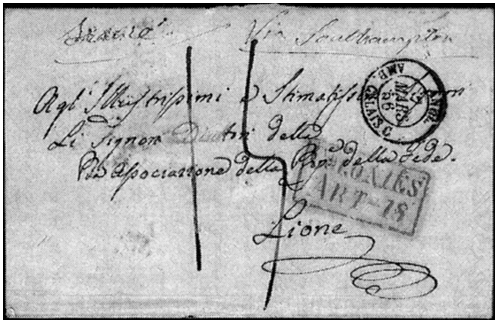 Via Southampton
Agl' Illustrissimi e Stimatissimi
Li Signori della
Pia Associazione della Prop: della Fede.
Lione
15
ANGL.
MARS
56
AMB. CALAIS C
COLONIES
ART. 18